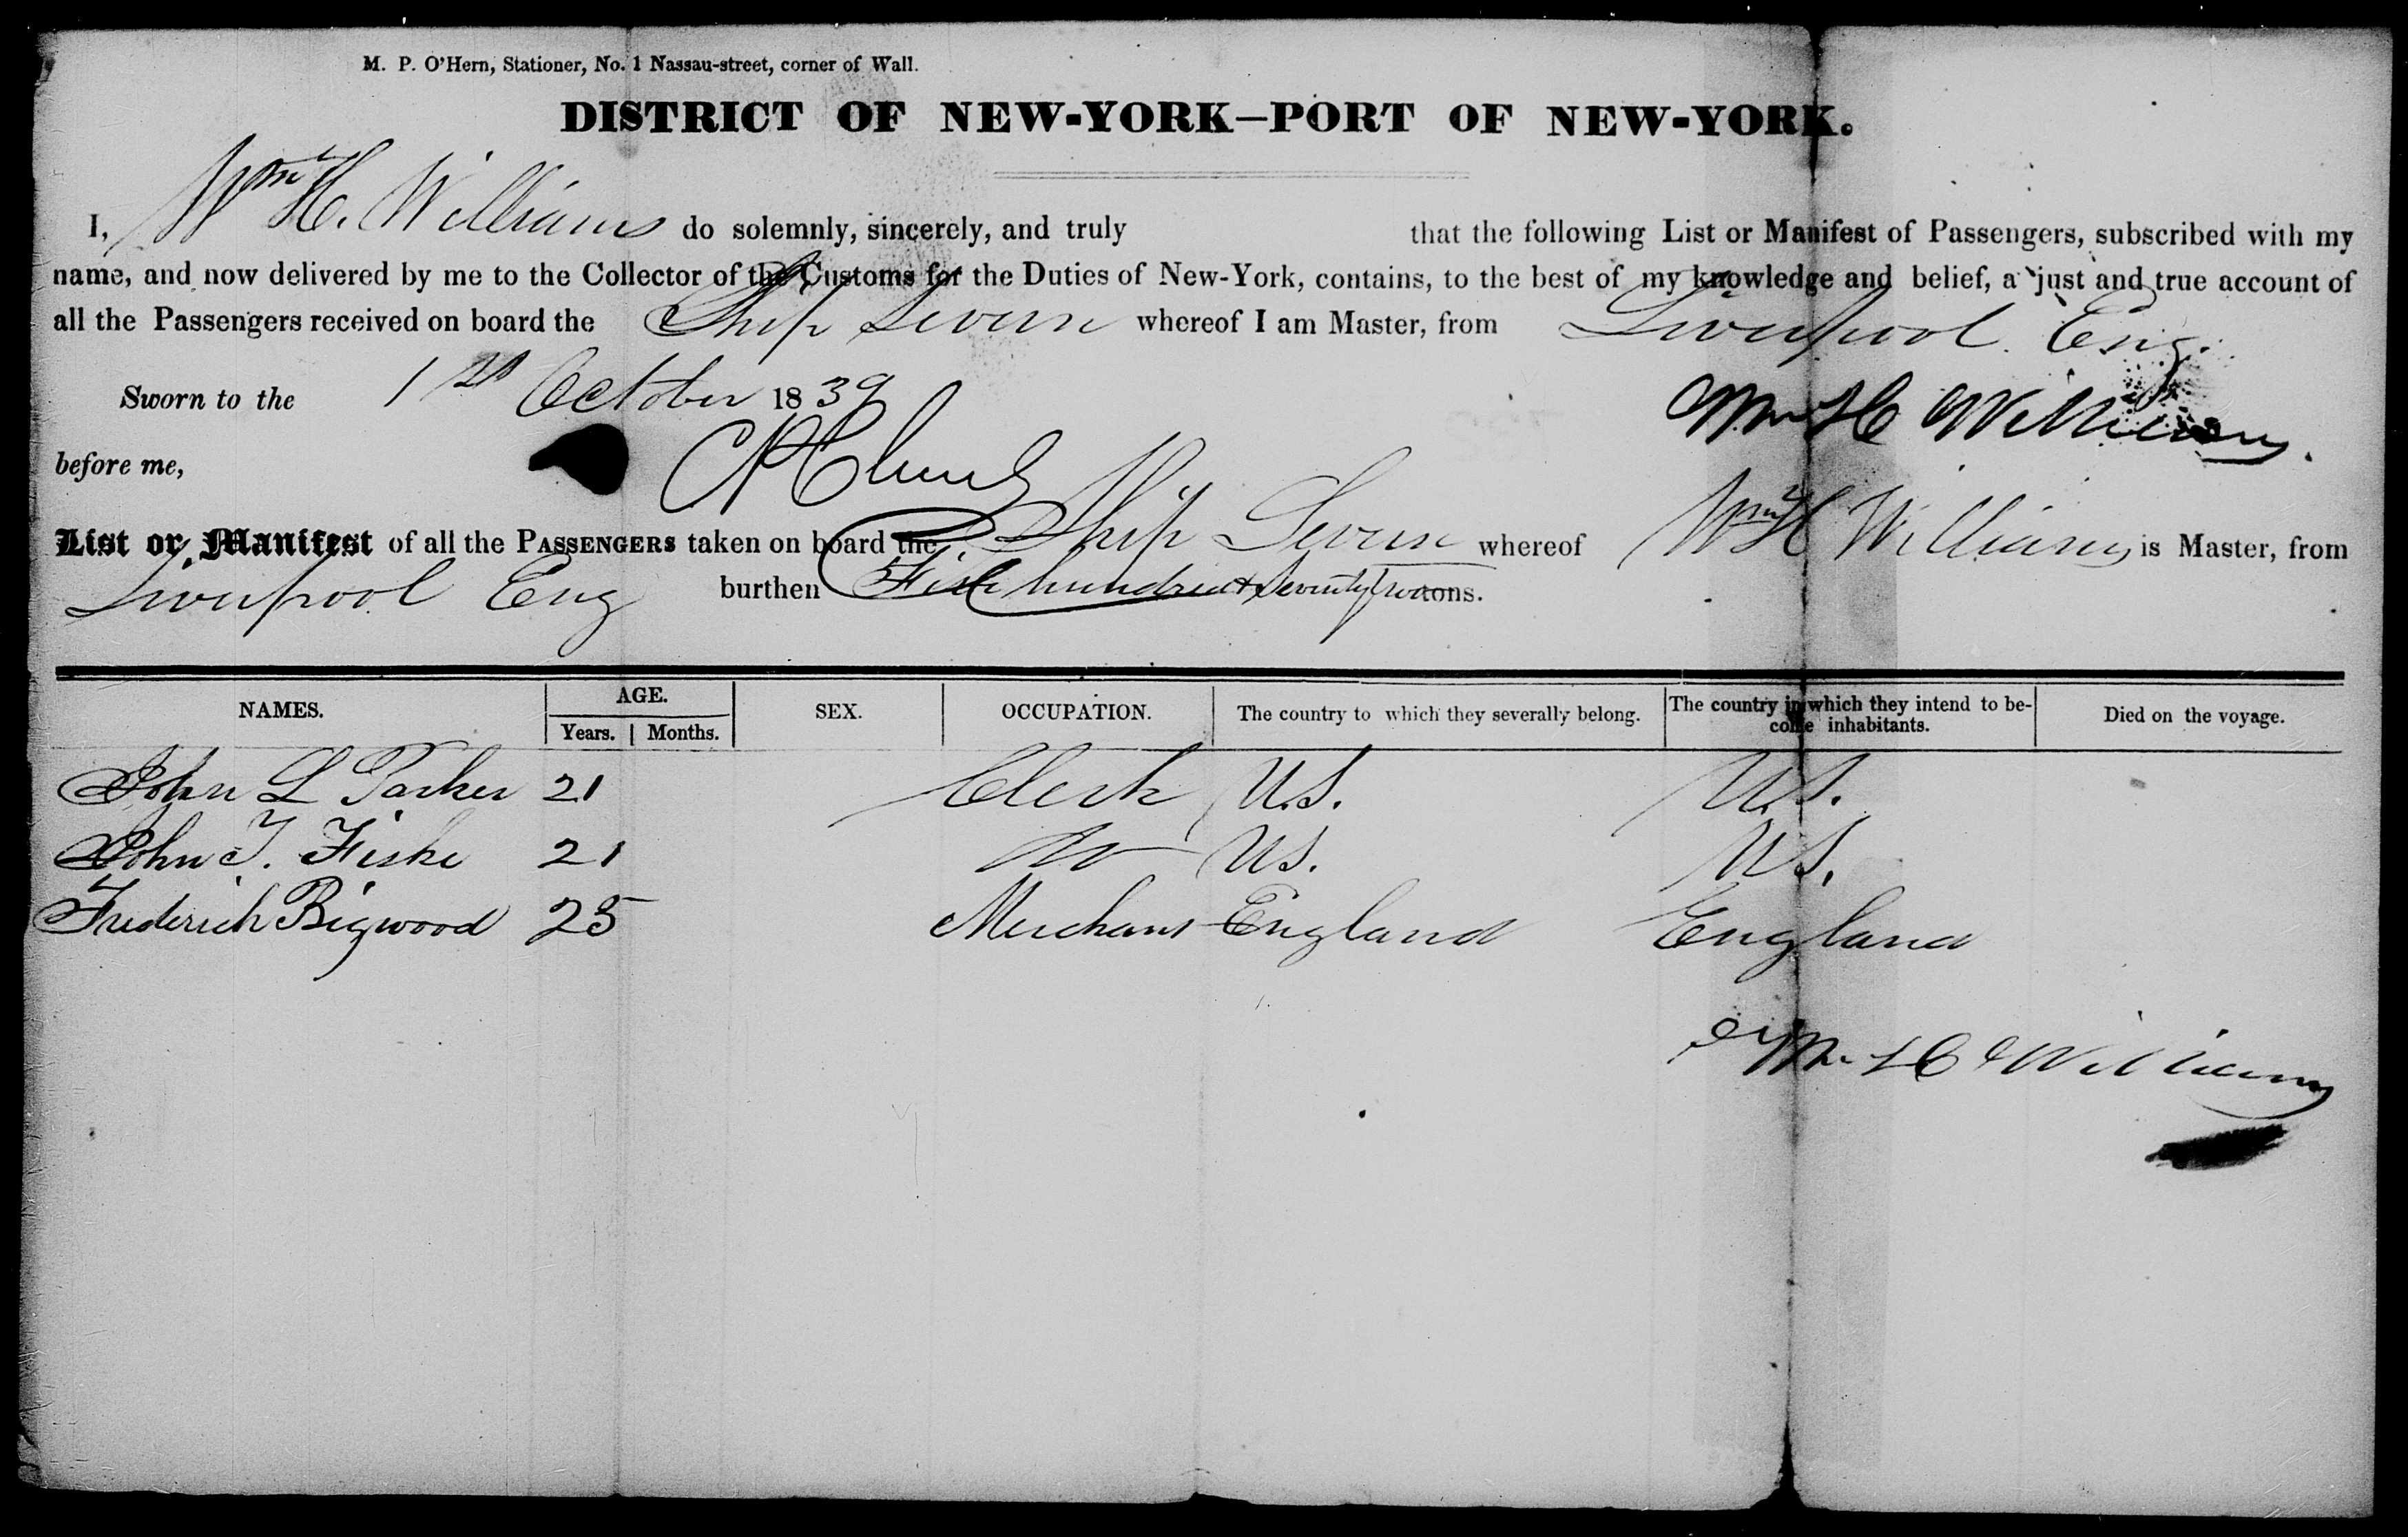 M. P. O'Hern, Stationer, No. 1 Nassau-street, corner of Wall.
DISTRICT OF NEW-YORK—PORT OF NEW-YORK.
I, Wm H. Williams do solemnly, sincerely, and truly that the following List or Manifest of Passengers, subscribed with my
name, and now delivered by me to the Collector of the Customs for the Duties of New-York, contains, to the best of my knowledge and belief, a just and true account of
all the Passengers received on board the Ship Severn whereof I am Master, from Liverpool Eng.
Sworn to the 1st October 1839 Wm H Williams.
before me,
List or Manifest of all the PASSENGERS taken on board the Ship Severn whereof Wm H Williams is Master, from
Liverpool Eng burthen Five hundred & Seventy two tons.
NAMES. AGE. Years. Months. SEX. OCCUPATION. The country to which they severally belong. The country in which they intend to become inhabitants. Died on the voyage.
John L Parker 21 Clerk U.S. U.S.
John T. Fiske 21 Do US. US.
Frederick Bigwood 25 Merchant England England
Wm H Williams